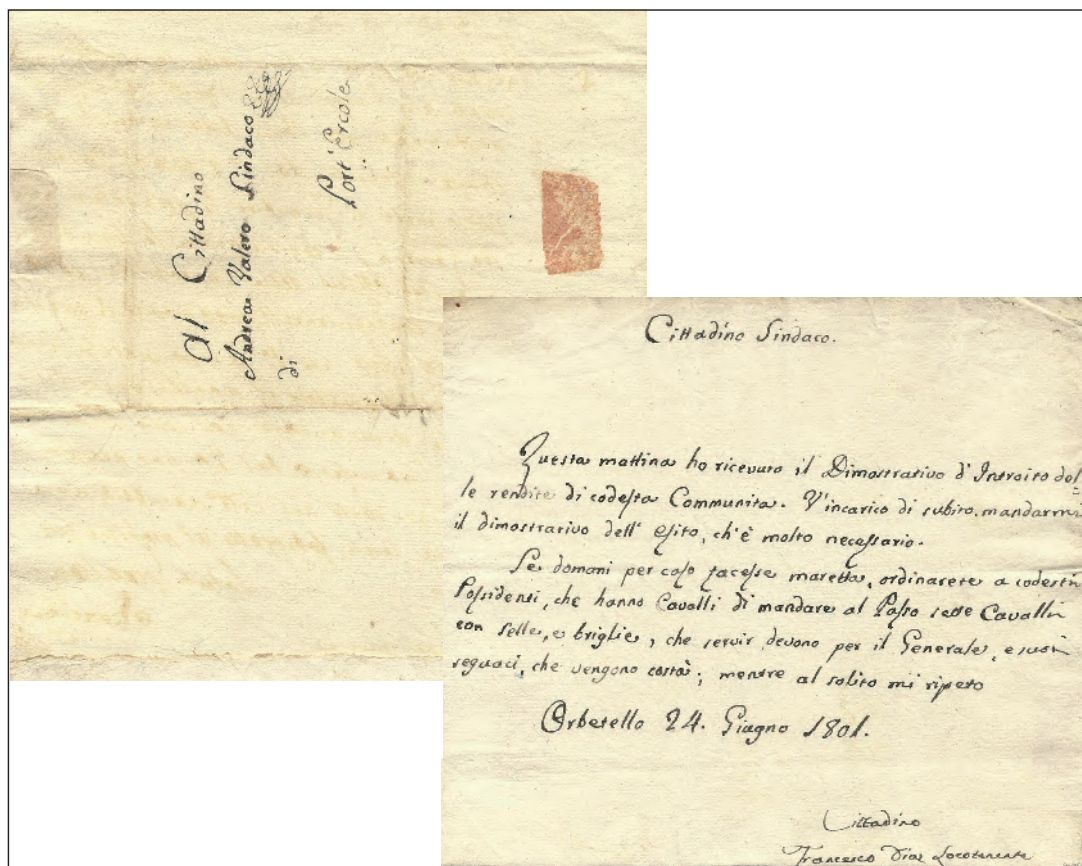 al Cittadino
Andrea Valero Sindaco
di
Port' Ercole
Cittadino Sindaco.
Questa mattina ho ricevuto il Dimostrativo d'Introito del=
le rendite di codesta Communita. V'incarico di subito mandarmi
il dimostrativo dell' esito, ch'è molto necessario.
Se domani per caso facesse maretta, ordinarete a codesti
Possidenti, che hanno Cavalli di mandare al Passo sette Cavalli
con selle, e briglie, che servir devono per il Generale, e suoi
seguaci, che vengono costà; mentre al solito mi ripeto
Orbetello 24. Giugno 1801.
Cittadino
Francesco Diaz Locotenente